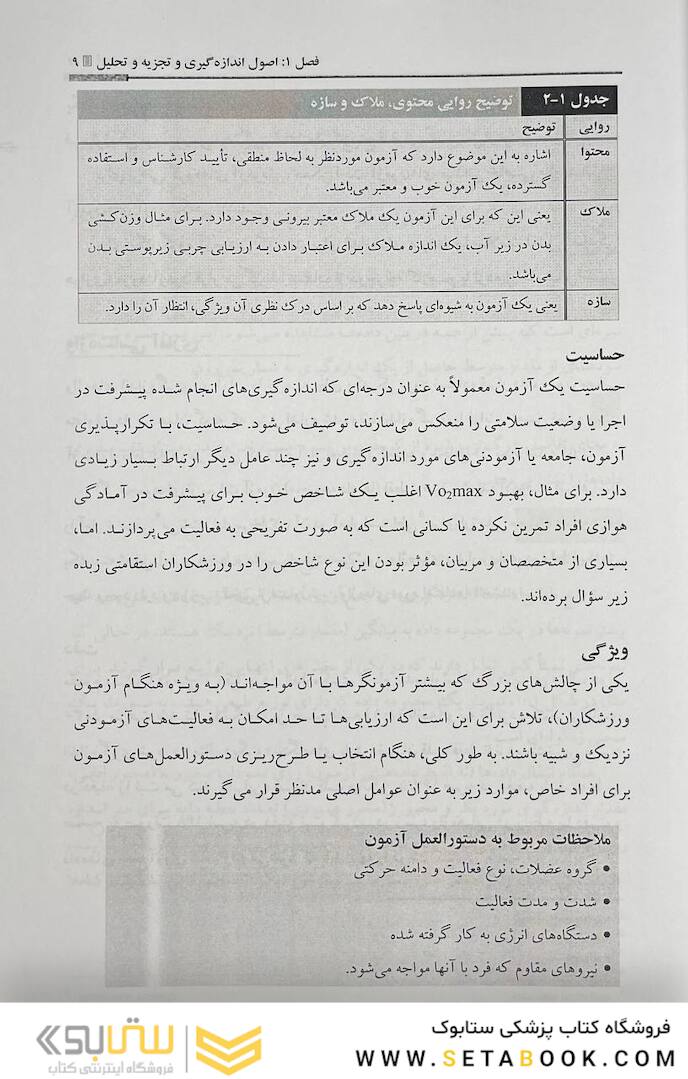 فصل ۱: اصول اندازه‌گیری و تجزیه و تحلیل ۹
جدول ۱-۲ توضیح روایی محتوی، ملاک و سازه
روایی توضیح
محتوا اشاره به این موضوع دارد که آزمون موردنظر به لحاظ منطقی، تأیید کارشناس و استفاده
گسترده، یک آزمون خوب و معتبر می‌باشد.
ملاک یعنی این که برای این آزمون یک ملاک معتبر بیرونی وجود دارد. برای مثال وزن‌کشی
بدن در زیر آب، یک اندازه ملاک برای اعتبار دادن به ارزیابی چربی زیرپوستی بدن
می‌باشد.
سازه یعنی یک آزمون به شیوه‌ای پاسخ دهد که بر اساس درک نظری آن ویژگی، انتظار آن را دارد.
حساسیت
حساسیت یک آزمون معمولاً به عنوان درجه‌ای که اندازه‌گیری‌های انجام شده پیشرفت در
اجرا یا وضعیت سلامتی را منعکس می‌سازند، توصیف می‌شود. حساسیت، با تکرارپذیری
آزمون، جامعه یا آزمودنی‌های مورد اندازه‌گیری و نیز چند عامل دیگر ارتباط بسیار زیادی
دارد. برای مثال، بهبود Vo₂max اغلب یک شاخص خوب برای پیشرفت در آمادگی
هوازی افراد تمرین نکرده یا کسانی است که به صورت تفریحی به فعالیت می‌پردازند. اما،
بسیاری از متخصصان و مربیان، مؤثر بودن این نوع شاخص را در ورزشکاران استقامتی زبده
زیر سؤال برده‌اند.
ویژگی
یکی از چالش‌های بزرگ که بیشتر آزمونگرها با آن مواجه‌اند (به ویژه هنگام آزمون
ورزشکاران)، تلاش برای این است که ارزیابی‌ها تا حد امکان به فعالیت‌های آزمودنی
نزدیک و شبیه باشند. به طور کلی، هنگام انتخاب یا طرح‌ریزی دستورالعمل‌های آزمون
برای افراد خاص، موارد زیر به عنوان عوامل اصلی مدنظر قرار می‌گیرند.
ملاحظات مربوط به دستورالعمل آزمون
• گروه عضلات، نوع فعالیت و دامنه حرکتی
• شدت و مدت فعالیت
• دستگاه‌های انرژی به کار گرفته شده
• نیروهای مقاوم که فرد با آنها مواجه می‌شود.
فروشگاه کتاب پزشکی ستابوک
WWW.SETABOOK.COM
ستابوک
فروشگاه اینترنتی کتاب